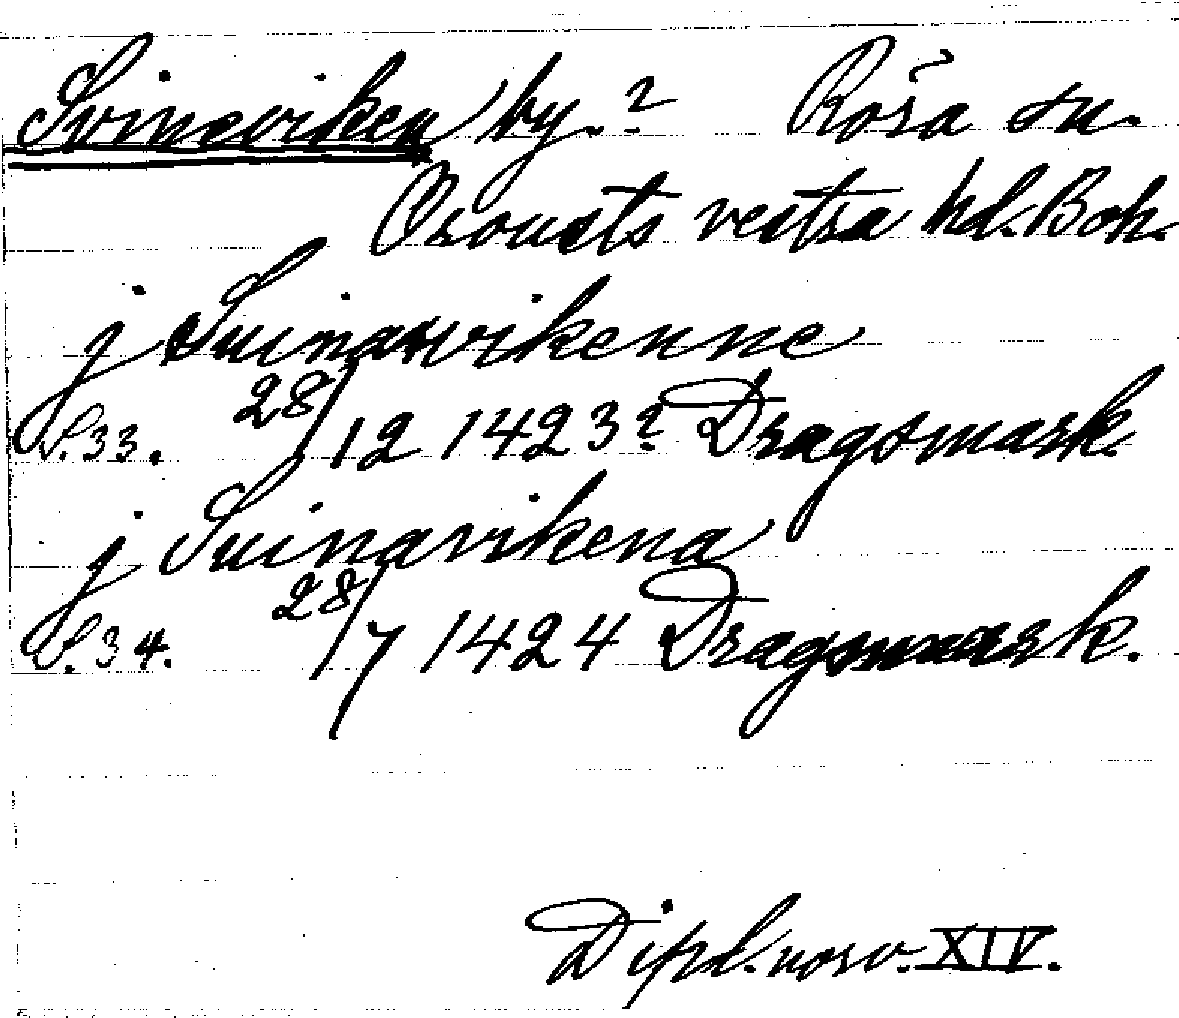 Svineviken by.? Röra sn.
Orousts vestra hd. Boh.
j Suinawikenne
S. 33. 28/12 1423? Dragsmark.
j Suinavikena
S. 34. 28/7 1424 Dragsmark.
Dipl. norv. XIV.